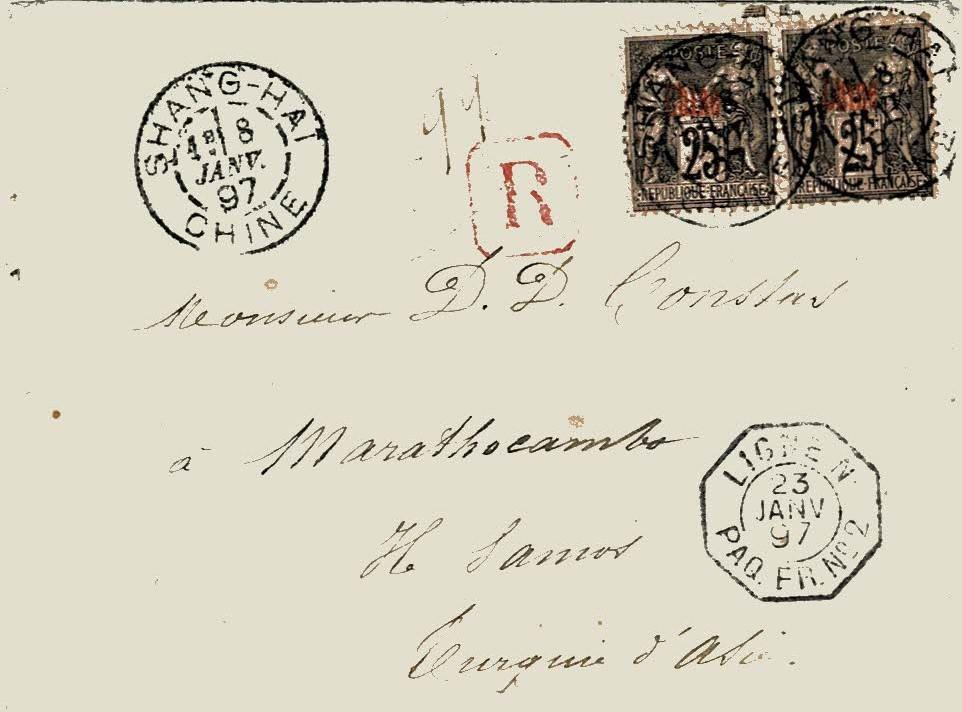 SHANG-HAÏ
1
4E 8
JANV.
97
CHINE
99
R
POSTES
Chine
25
REPUBLIQUE FRANÇAISE
POSTES
Chine
25
REPUBLIQUE FRANÇAISE
Monsieur D. D. Constas
à Marathocambo
Samos
Turquie d'Asie.
LIGNE N
23
JANV
97
PAQ. FR. Nº 2